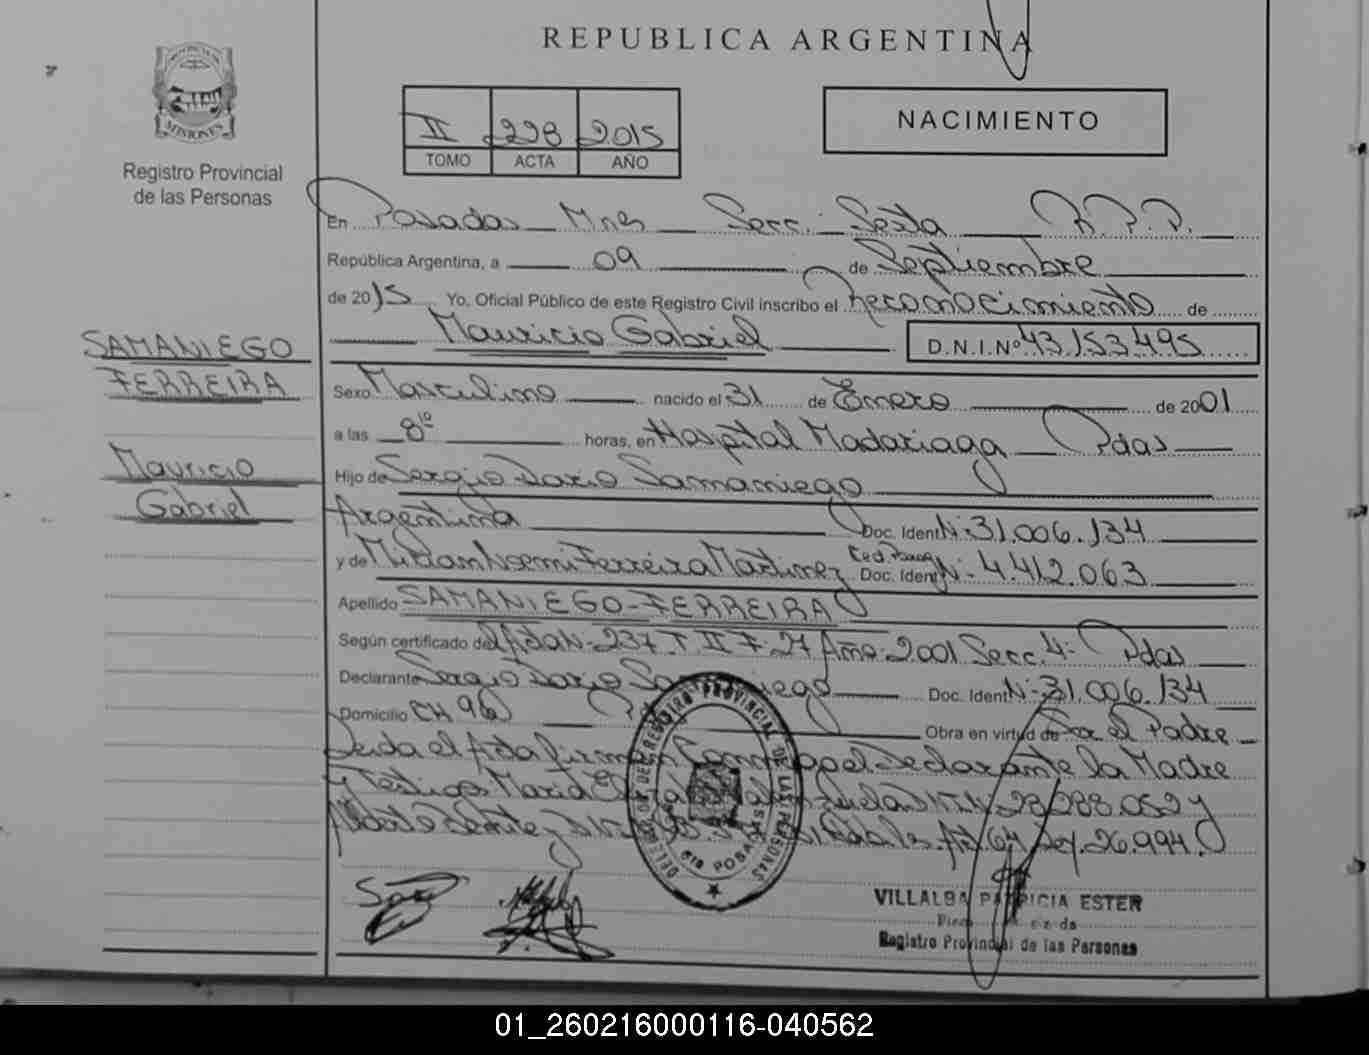 REPUBLICA ARGENTINA
PROVINCIA DE
MISIONES
Registro Provincial
de las Personas
II 228 2015
TOMO ACTA AÑO
NACIMIENTO
En Posadas Mnes Secc. Sexta R.P.P.
República Argentina, a 09 de Septiembre
de 2015 Yo, Oficial Público de este Registro Civil inscribo el Reconocimiento de
Mauricio Gabriel D.N.I.Nº 43.153.495
SAMANIEGO
FERREIRA
Mauricio
Gabriel
Sexo Masculino nacido el 31 de Enero de 2001
a las 8 horas, en Hospital Madariaga Pdas
Hijo de Sergio Dario Samaniego
Argentina Doc. Ident N: 31.006.134
y de Miriam Noemi Ferreira Martinez Ced. Parag Doc. Ident N: 4.412.063
Apellido SAMANIEGO-FERREIRA
Según certificado de Acta N: 237 T II F: 27 Año 2001 Secc. 4: Pdas
Declarante Sergio Dario Samaniego Doc. Ident N: 31.006.134
Domicilio CH 96 Obra en virtud de Ser el Padre
Leida el Acta firman Conmigo el Declarante la Madre
y Testigos Maria D.N.I.N 23.288.052 y
Alberto Benitez D.N.I. Art. 64 Ley. 26.994.
DELEGACION DEL REGISTRO PROVINCIAL DE LAS PERSONAS
POSADAS
VILLALBA PATRICIA ESTER
Registro Provincial de las Personas
01_260216000116-040562